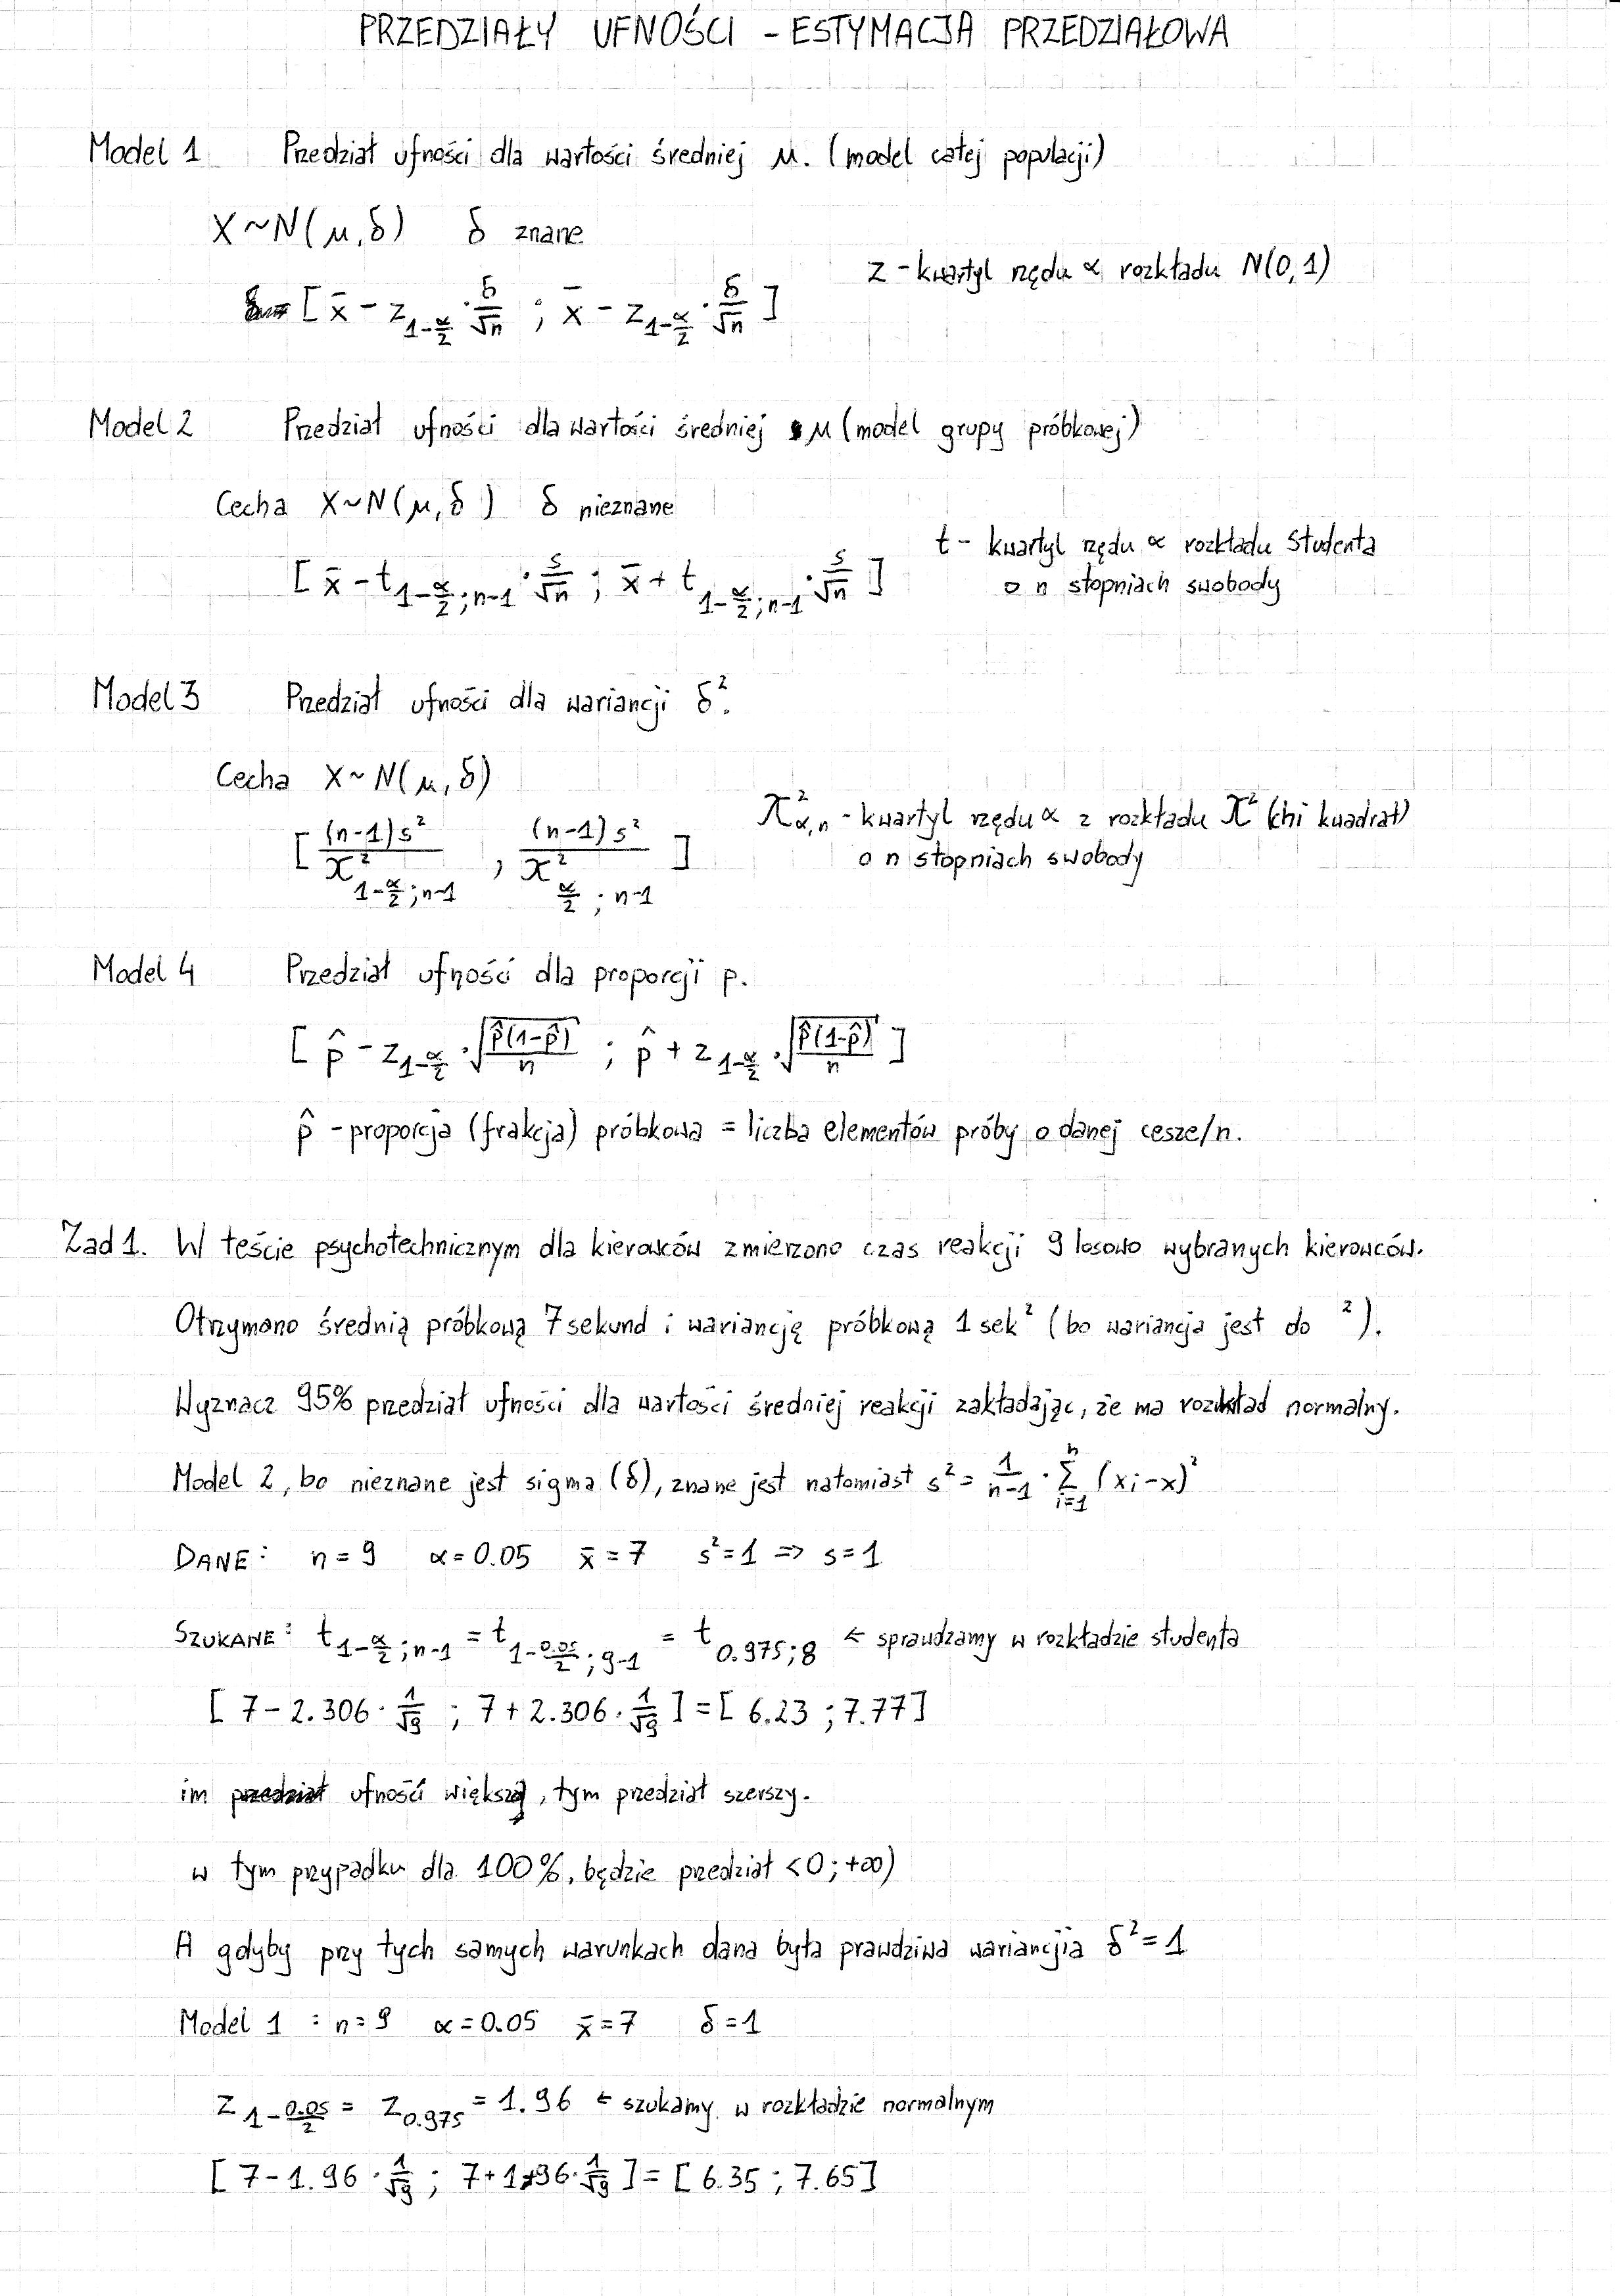 PRZEDZIAŁY UFNOŚCI - ESTYMACJA PRZEDZIAŁOWA
Model 1 Przedział ufności dla wartości średniej μ. (model całej populacji)
X~N(μ,δ) δ znane
z - kwartyl rzędu α rozkładu N(0,1)
[x̄ - z_{1-α/2} · δ/√n ; x̄ - z_{1-α/2} · δ/√n ]
Model 2 Przedział ufności dla wartości średniej μ (model grupy próbkowej)
Cecha X~N(μ,δ) δ nieznane
t - kwartyl rzędu α rozkładu Studenta
o n stopniach swobody
[x̄ - t_{1-α/2;n-1} · s/√n ; x̄ + t_{1-α/2;n-1} · s/√n ]
Model 3 Przedział ufności dla wariancji δ².
Cecha X~N(μ,δ)
χ²_{α,n} - kwartyl rzędu α z rozkładu χ² (chi kwadrat)
o n stopniach swobody
[ (n-1)s²/χ²_{1-α/2;n-1} , (n-1)s²/χ²_{α/2;n-1} ]
Model 4 Przedział ufności dla proporcji p.
[ p̂ - z_{1-α/2} · √(p̂(1-p̂)/n) ; p̂ + z_{1-α/2} · √(p̂(1-p̂)/n) ]
p̂ - proporcja (frakcja) próbkowa = liczba elementów próby o danej cesze/n.
Zad 1. W teście psychotechnicznym dla kierowców zmierzono czas reakcji 9 losowo wybranych kierowców.
Otrzymano średnią próbkową 7 sekund i wariancję próbkową 1 sek² (bo wariancja jest do ²).
Wyznacz 95% przedział ufności dla wartości średniej reakcji zakładając, że ma rozkład normalny.
Model 2, bo nieznane jest sigma (δ), znane jest natomiast s² = 1/(n-1) · Σ_{i=1}^{n} (xi-x)²
DANE: n=9 α=0.05 x̄=7 s²=1 => s=1
SZUKANE: t_{1-α/2;n-1} = t_{1-0.05/2;9-1} = t_{0.975;8} ← sprawdzamy w rozkładzie studenta
[ 7-2.306 · 1/√9 ; 7+2.306 · 1/√9 ] = [ 6.23 ; 7.77]
im ufność większa, tym przedział szerszy.
w tym przypadku dla 100%, będzie przedział <0;+∞)
A gdyby przy tych samych warunkach dana była prawdziwa wariancjia δ²=1
Model 1 : n=9 α=0.05 x̄=7 δ=1
z_{1-0.05/2} = z_{0.975} = 1.96 ← szukamy w rozkładzie normalnym
[ 7-1.96 · 1/√9 ; 7+1.96 · 1/√9 ] = [ 6.35 ; 7.65]